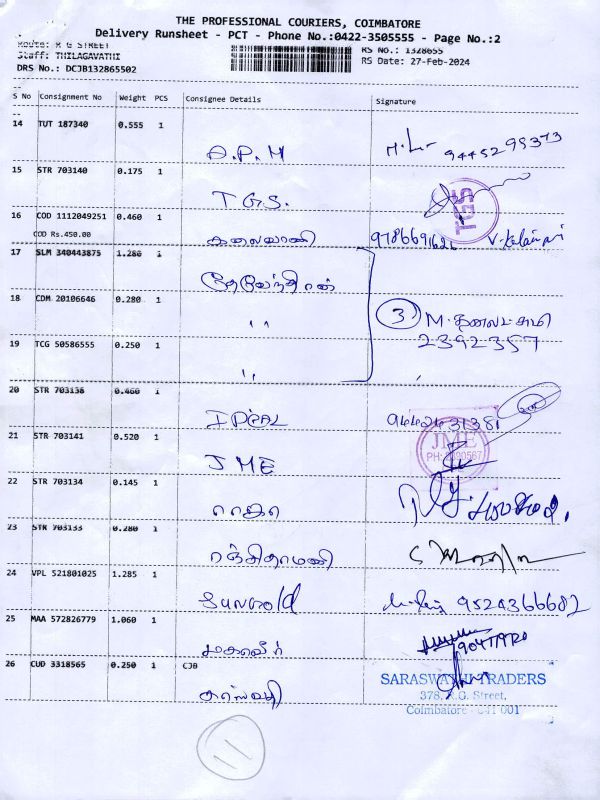 THE PROFESSIONAL COURIERS, COIMBATORE
Delivery Runsheet - PCT - Phone No.:0422-3505555 - Page No.:2
Route: R G STREET
Staff: THILAGAVATHI
DRS No.: DCJB132865502
RS No.: 1328655
RS Date: 27-Feb-2024
S No Consignment No Weight PCS Consignee Details Signature
14 TUT 187340 0.555 1
A.P.M 9445295373
15 STR 703140 0.175 1
T.G.S. TGS
16 COD 1112049251 0.460 1
COD Rs.450.00
கலைவாணி 9786691626
17 SLM 340443875 1.280 1
தேவேந்திரன்
18 CDM 20106646 0.280 1
" 3 M.
19 TCG 50586555 0.250 1
2392357
"
20 STR 703138 0.460 1
IDEAL 9442431381
21 STR 703141 0.520 1
JME JME
22 STR 703134 0.145 1
ராஜா
23 STR 703133 0.280 1
ரஞ்சிதாமணி
24 VPL 521801025 1.285 1
SUNGOld 9524366682
25 MAA 572826779 1.060 1
மகாவீர்
26 CUD 3318565 0.250 1 CJB
சரஸ்வதி
SARASWATHI TRADERS
378, R.G. Street,
Coimbatore - 641 001